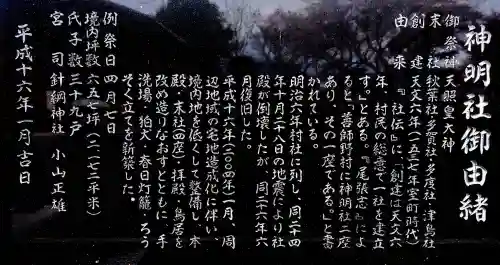 神明社御由緒
御祭神 天照皇大神
末社 秋葉社・多賀社・多度社・津島社
創建 天文六年(一五三七年室町時代)
由来 『社伝』に「創建は天文六
年、村民の総意で一社を建立
す。」とある。『尾張志』によ
ると、「善師野村に神明社二座
あり、その一座である。」と書
かれている。
明治六年村社に列し、同二十四
年十月二十八日の地震により社
殿が倒壊したが、同二十六年六
月復旧した。
平成十六年(二〇〇四年)一月、周
辺地域の宅地造成化に伴い、
境内地を低くして整備し、本
殿・末社(四座)・拝殿・鳥居を
改め造りなおすとともに、手
洗場・狛犬・春日灯籠・ろう
そく立てを新築した。
例祭日 四月七日
境内坪数 六五七坪(二一七二平米)
氏子数 三十九戸
宮司 針綱神社 小山正雄
平成十六年一月吉日